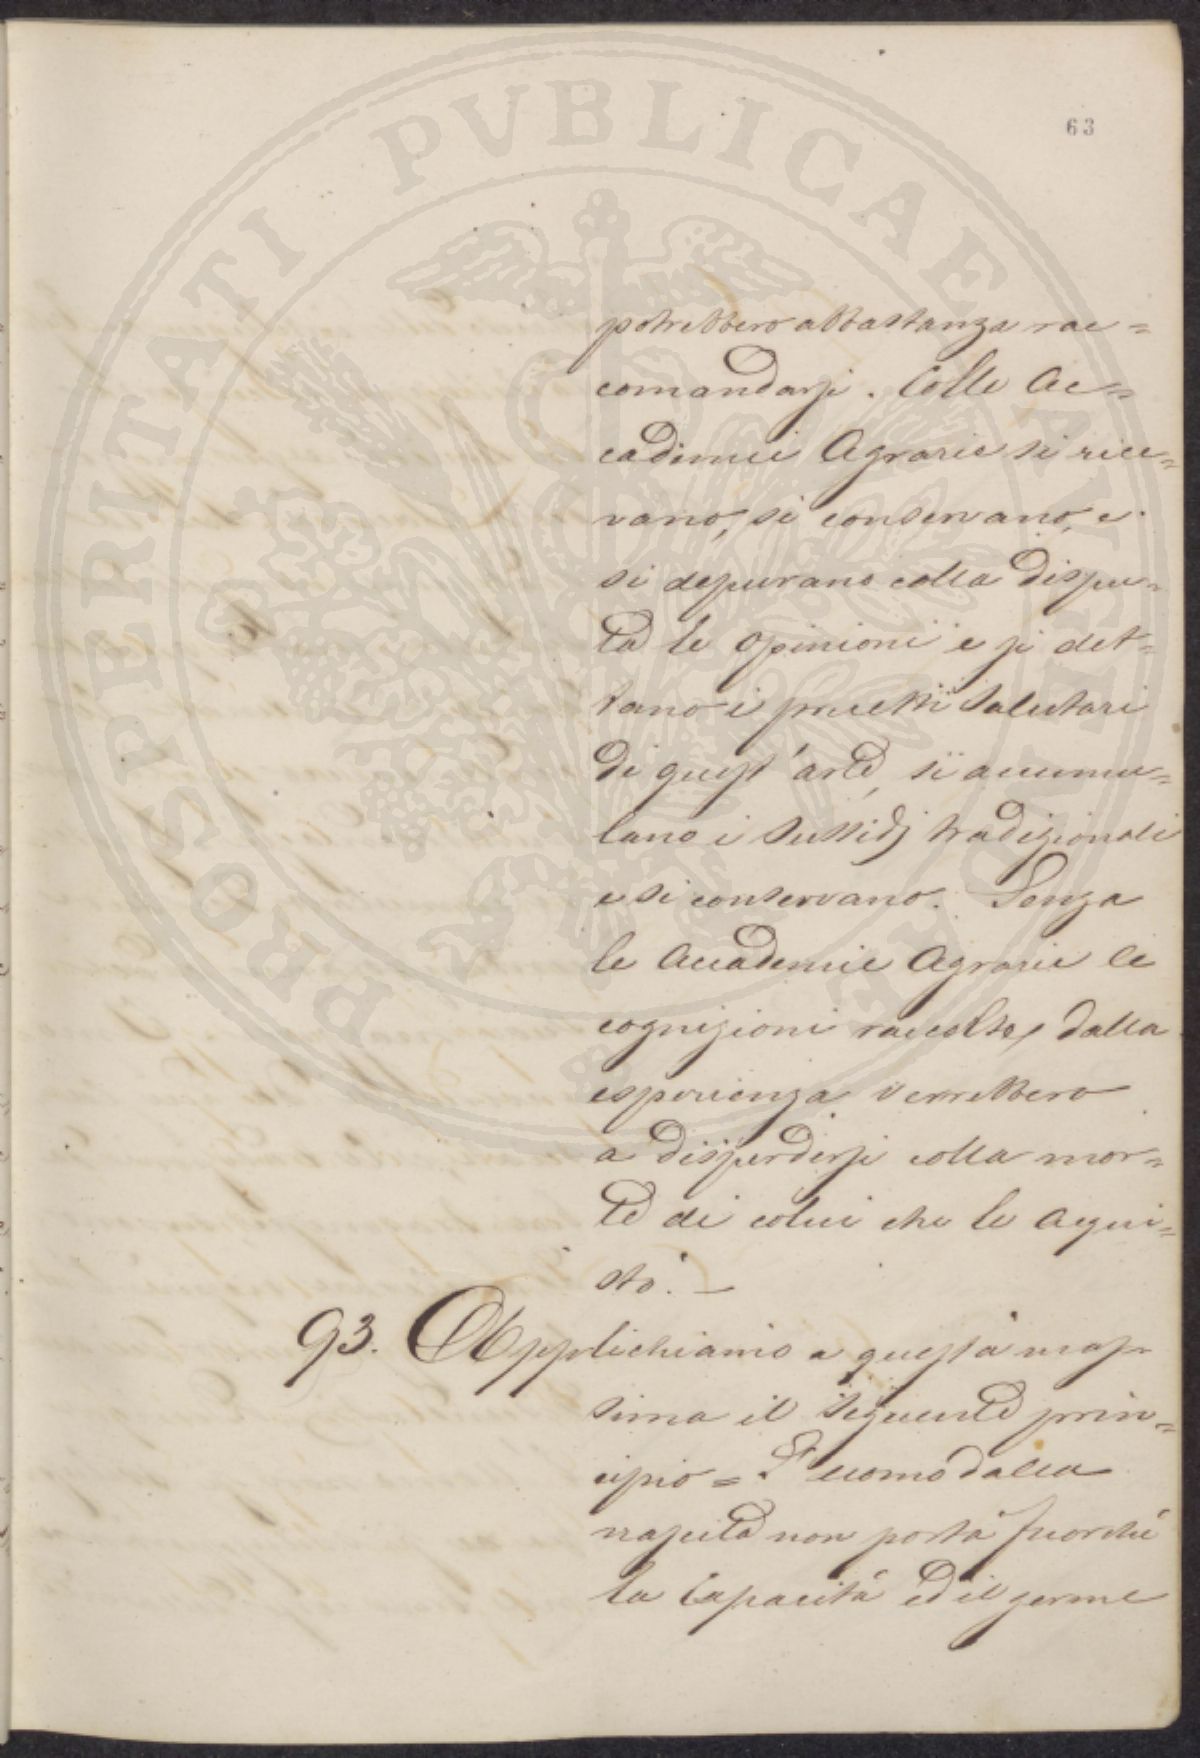 63
PROSPERITATI PVBLICAE AVGENDAE
potrebbero abbastanza rac=
comandarsi. Colle Ac=
cademie Agrarie si rice=
vano, si conservano, e
si depurano colla dispu=
ta le opinioni e si det=
tano i precetti salutari
di quest'arte, si accumu=
lano i sussidj tradizionali
e si conservano. Senza
le Accademie Agrarie le
cognizioni raccolte dalla
esperienza verrebbero
a disperdersi colla mor=
te di colui che le acqui=
stò. —
93. Applichiamo a questa mas=
sima il seguente prin=
cipio = L'uomo dalla
nascita non porta fuorché
la Capacità ed il germe